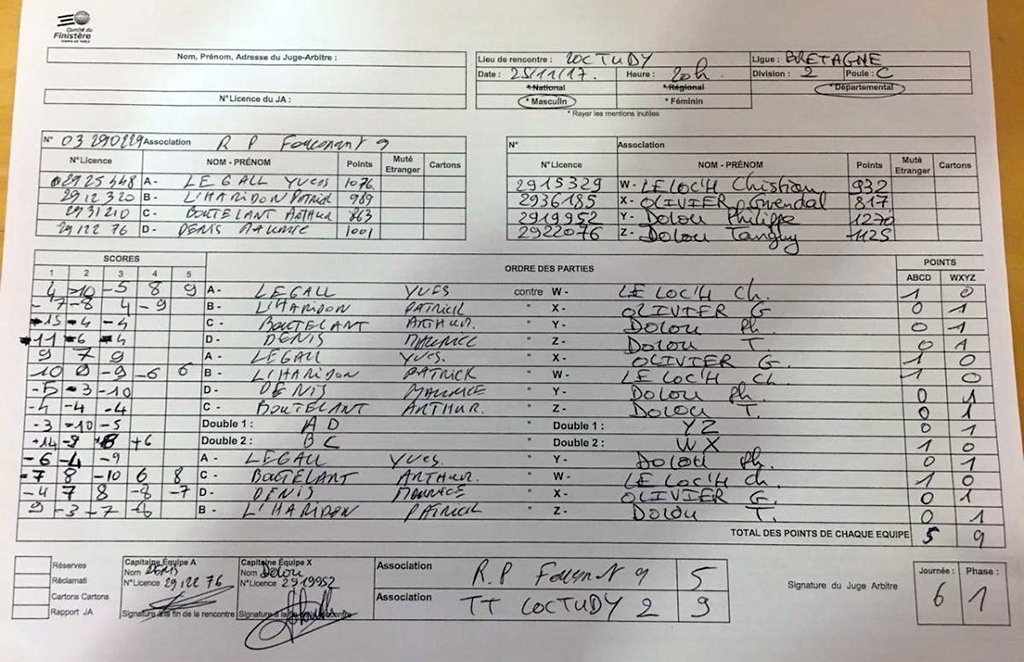 Comité du
Finistère
TENNIS DE TABLE
Nom, Prénom, Adresse du Juge-Arbitre :
N°Licence du JA :
Lieu de rencontre : LOCTUDY Ligue : BRETAGNE
Date : 25/11/17. Heure : 20h. Division : 2 Poule : C
* National * Régional * Départemental
* Masculin * Féminin
* Rayer les mentions inutiles
N° 03290229 Association R P Fouesnant 9
N°Licence NOM - PRÉNOM Points Muté Etranger Cartons
2925348 A - LEGALL YVES 1076
2912320 B - L'HARIDON PATRICK 989
2931210 C - BOUTELANT ARTHUR 863
29122 76 D - DENIS MAURICE 1001
N° Association
N°Licence NOM - PRÉNOM Points Muté Etranger Cartons
2915329 W - LE LOC'H Christian 932
2936185 X - OLIVIER Gwendal 817
2919952 Y - DOLOU Philippe 1270
2922076 Z - DOLOU Tanguy 1125
SCORES ORDRE DES PARTIES POINTS
1 2 3 4 5 ABCD WXYZ
4 -10 -5 8 9 A - LEGALL YVES contre W - LE LOC'H Ch. 1 0
-7 -8 4 -9 B - L'HARIDON PATRICK " X - OLIVIER G 0 1
-15 -4 -4 C - BOUTELANT ARTHUR. " Y - DOLOU Ph. 0 1
-11 -6 -4 D - DENIS MAURICE " Z - DOLOU T. 0 1
9 7 9 A - LEGALL YVES. " X - OLIVIER G. 1 0
10 -9 -6 6 B - L'HARIDON PATRICK " W - LE LOC'H Ch. 1 0
-5 -3 -10 D - DENIS MAURICE " Y - DOLOU Ph. 0 1
-4 -4 -4 C - BOUTELANT ARTHUR. " Z - DOLOU T. 0 1
-3 -10 -5 Double 1 : A D " Double 1 : YZ 0 1
+14 +6 Double 2 : B C " Double 2 : WX 1 0
-6 -4 -9 A - LEGALL YVES. " Y - DOLOU Ph. 0 1
-7 8 -10 6 8 C - BOUTELANT ARTHUR. " W - LE LOC'H Ch. 1 0
-4 7 8 -8 -7 D - DENIS MAURICE " X - OLIVIER G. 0 1
9 -3 -7 B - L'HARIDON PATRICK " Z - DOLOU T. 0 1
TOTAL DES POINTS DE CHAQUE EQUIPE 5 9
Réserves
Réclamati
Cartons Cartons
Rapport JA
Capitaine Équipe A
Nom DENIS
N°Licence 29122 76
Signature à la fin de la rencontre
Capitaine Équipe X
Nom Dolou
N°Licence 2919952
Signature à la fin de la rencontre
Association R.P 9 5
Association TT LOCTUDY 2 9
Signature du Juge Arbitre
Journée : Phase :
6 1